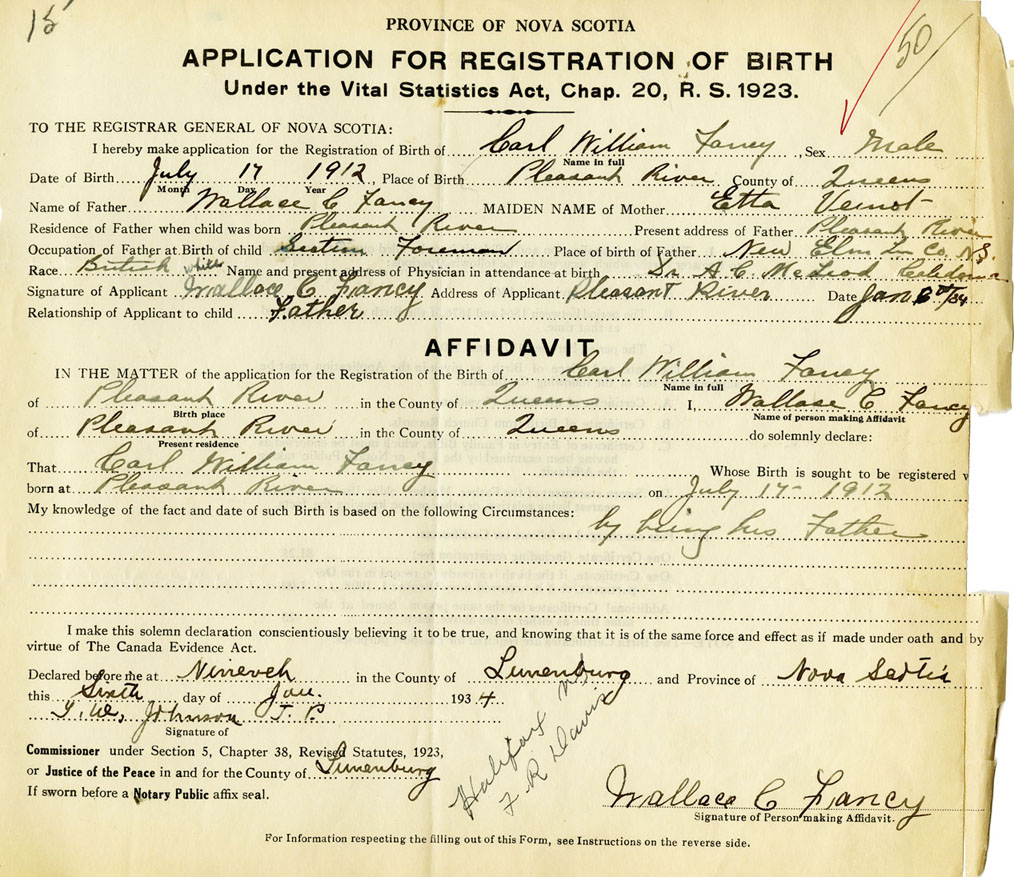 15
50
PROVINCE OF NOVA SCOTIA
APPLICATION FOR REGISTRATION OF BIRTH
Under the Vital Statistics Act, Chap. 20, R. S. 1923.
TO THE REGISTRAR GENERAL OF NOVA SCOTIA:
I hereby make application for the Registration of Birth of Carl William Fancy, Sex Male
Name in full
Date of Birth July 17 1912 Place of Birth Pleasant River County of Queens
Month Day Year
Name of Father Wallace C Fancy MAIDEN NAME of Mother Etta Veinot
Residence of Father when child was born Pleasant River Present address of Father Pleasant River
Occupation of Father at Birth of child Section Foreman Place of birth of Father New Elm Lun Co, N.S.
Race British White Name and present address of Physician in attendance at birth Dr A. C. McLeod Caledonia
Signature of Applicant Wallace C Fancy Address of Applicant Pleasant River Date Jan 6th/34
Relationship of Applicant to child Father
AFFIDAVIT
IN THE MATTER of the application for the Registration of the Birth of Carl William Fancy
Name in full
of Pleasant River in the County of Queens I, Wallace C Fancy
Birth place Name of person making Affidavit
of Pleasant River in the County of Queens do solemnly declare:
Present residence
That Carl William Fancy Whose Birth is sought to be registered w
born at Pleasant River on July 17- 1912
My knowledge of the fact and date of such Birth is based on the following Circumstances: by being his Father
I make this solemn declaration conscientiously believing it to be true, and knowing that it is of the same force and effect as if made under oath and by
virtue of The Canada Evidence Act.
Declared before me at Nineveh in the County of Lunenburg and Province of Nova Scotia
this Sixth day of Jan. 1934
Johnson J. P.
Signature of
Commissioner under Section 5, Chapter 38, Revised Statutes, 1923,
or Justice of the Peace in and for the County of Lunenburg
If sworn before a Notary Public affix seal.
Halifax
F R Davis
Wallace C Fancy
Signature of Person making Affidavit.
For Information respecting the filling out of this Form, see Instructions on the reverse side.